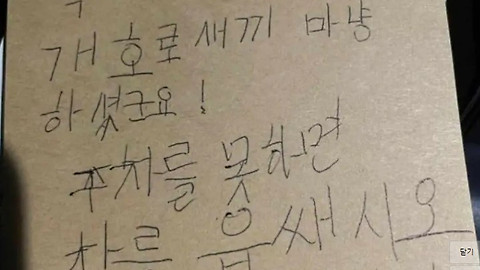 개호로새끼 마냥
하셨군요!
주차를 못하면
차를 읍쌔시오
닫기